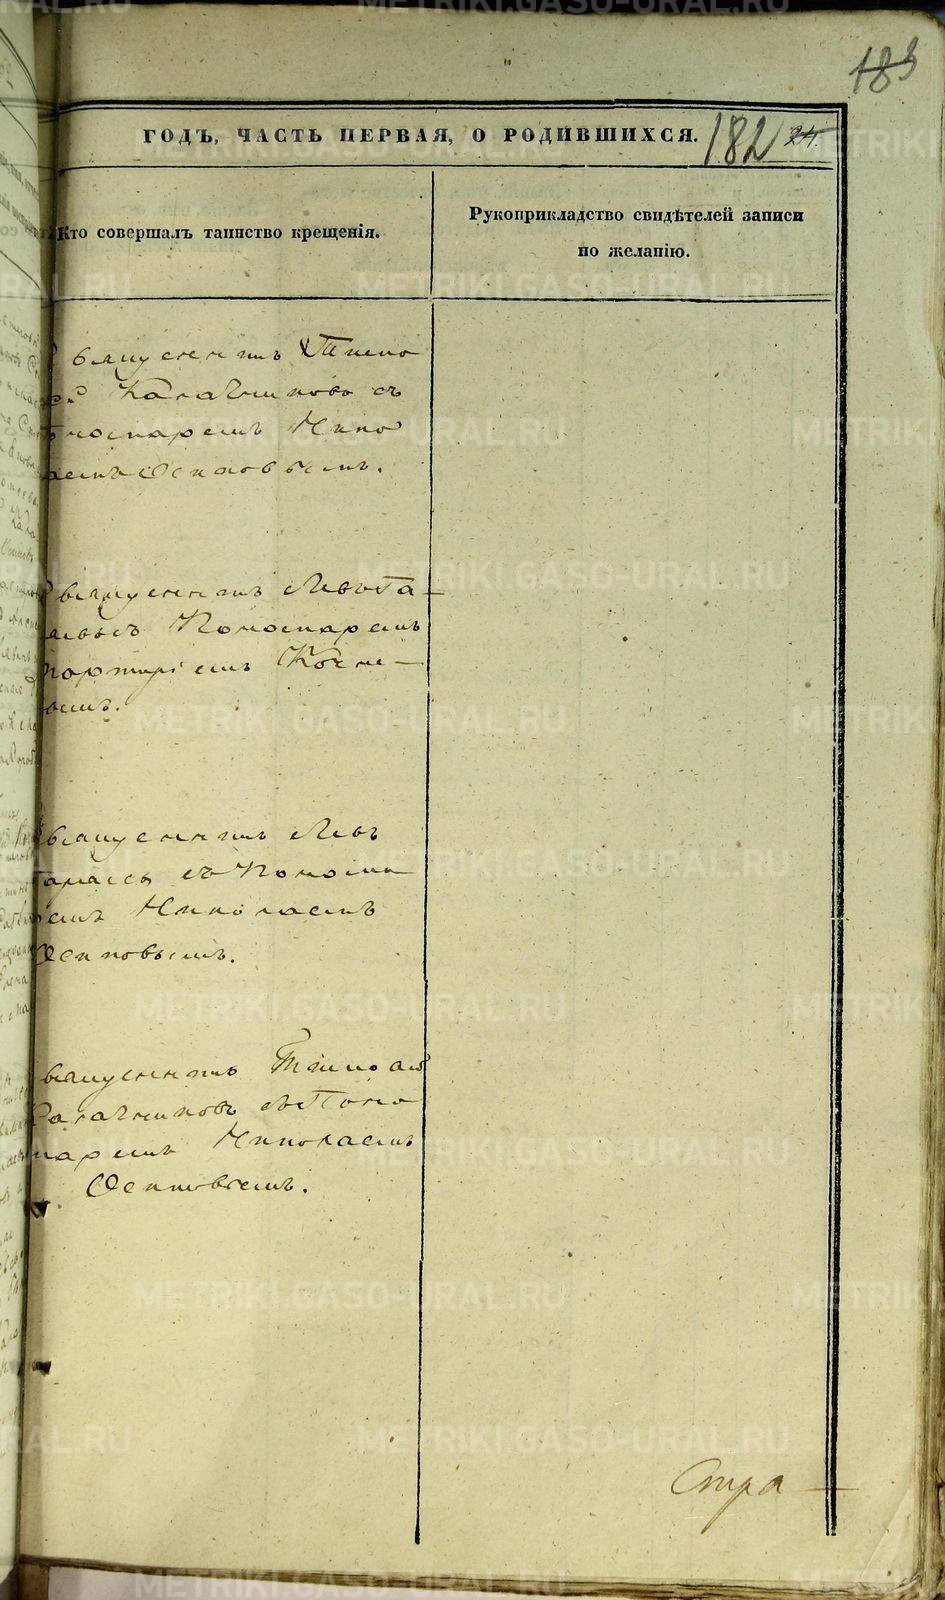 183
ГОДЪ, ЧАСТЬ ПЕРВАЯ, О РОДИВШИХСЯ. 182 24.
Кто совершалъ таинство крещенія.
Рукоприкладство свидѣтелей записи
по желанію.
священникъ Тимо
фей Калачниковъ съ
Пономаремъ Нико
лаемъ Осиповымъ.
священникъ Левъ
Пономаремъ
священникъ Левъ
съ Понома
ремъ Николаемъ
Осиповымъ.
священникъ Тимофей
Калачниковъ съ Поно
маремъ Николаемъ
Осиповымъ.
Стра
METRIKI.GASO-URAL.RU